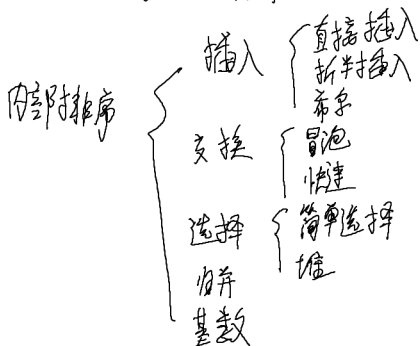 内部排序
插入
直接插入
折半插入
希尔
交换
冒泡
快速
选择
简单选择
堆
归并
基数